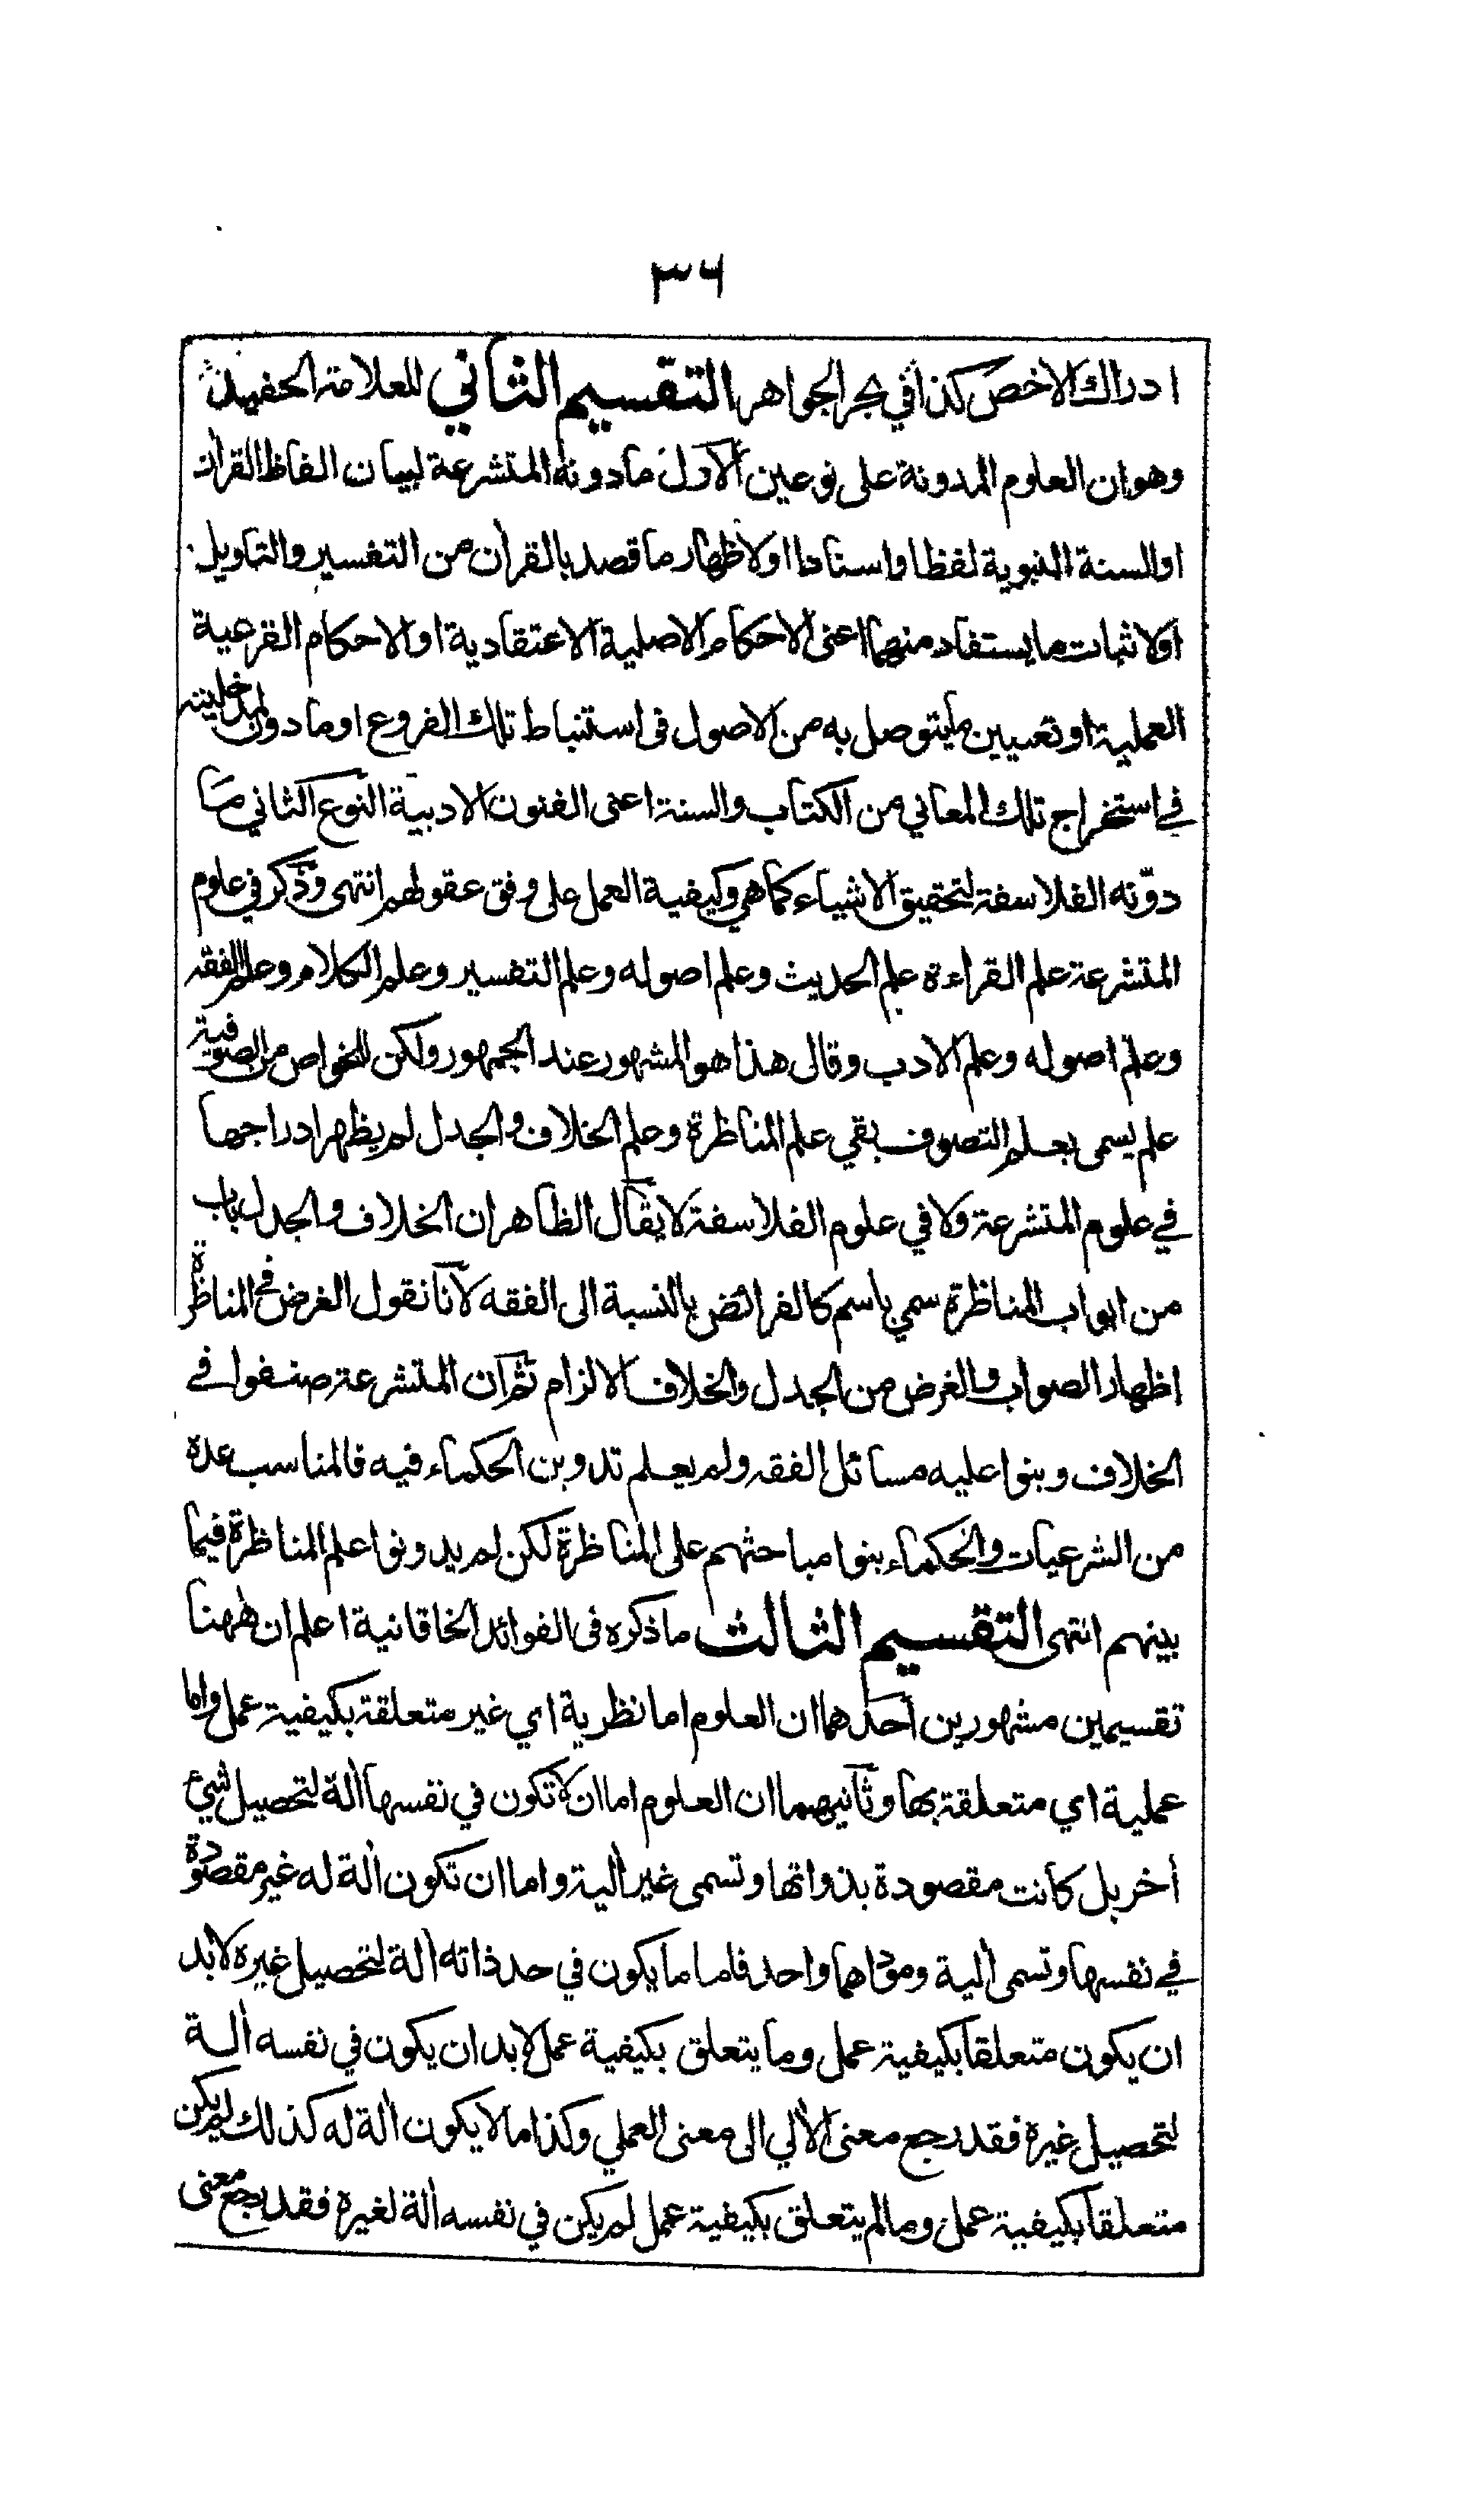 ٣٦
ادراك الاخص كذا في بحر الجواهر التقسيم الثاني للعلامة الحفيد
وهو ان العلوم المدونة على نوعين الاول ما دونه المتشرعة لبيان الفاظ القران
او السنة النبوية لفظا واسنادا او لاظهار ما قصد بالقرأن من التفسير والتاويل
او لاثبات ما يستفاد منهما اعنى الاحكام الاصلية الاعتقادية او الاحكام الفرعية
العملية او تعيين ما يتوصل به من الاصول فى استنباط تلك الفروع او ما دون لمدخليته
في استخراج تلك المعاني من الكتاب والسنة اعنى الفنون الادبية النوع الثاني ما
دوّنه الفلاسفة لتحقيق الاشياء كما هي وكيفية العمل على وفق عقولهم انتهى وذكر في علوم
المتشرعة علم القراءة علم الحديث وعلم اصوله وعلم التفسير وعلم الكلام وعلم الفقه
وعلم اصوله وعلم الادب وقال هذا هو المشهور عند الجمهور ولكن للخواص من الصوفية
علم يسمى بعلم التصوف بقي علم المناظرة وعلم الخلاف والجدل لم يظهر ادراجها
في علوم المتشرعة ولا في علوم الفلاسفة لا يقال الظاهر ان الخلاف والجدل باب
من ابواب المناظرة سمي باسم كالفرائض بالنسبة الى الفقه لانا نقول الغرض في المناظرة
اظهار الصواب والغرض من الجدل والخلاف الالزام ثم ان المتشرعة صنفوا في
الخلاف وبنوا عليه مسائل الفقه ولم يعلم تدوين الحكماء فيه فالمناسب عده
من الشرعيات والحكماء بنوا مباحثهم على المناظرة لكن لم يدونوا علم المناظرة فيما
بينهم انتهى التقسيم الثالث ما ذكره فى الفوائد الخاقانية اعلم ان ههنا
تقسيمين مشهورين احدهما ان العلوم اما نظرية اي غير متعلقة بكيفية عمل واما
عملية اي متعلقة بها وثانيهما ان العلوم اما ان لا تكون في نفسها ألة لتحصيل شيء
أخر بل كانت مقصودة بذواتها وتسمى غير ألية واما ان تكون ألة له غير مقصودة
في نفسها وتسمى ألية ومؤداهما واحد فاما ما يكون في حد ذاته ألة لتحصيل غيره لا بد
ان يكون متعلقا بكيفية عمل وما يتعلق بكيفية عمل لا بد ان يكون في نفسه ألة
لتحصيل غيره فقد رجع معنى الألي الى معنى العملي وكذا ما لا يكون ألة له كذلك لم يكن
متعلقا بكيفية عمل وما لم يتعلق بكيفية عمل لم يكن في نفسه ألة لغيره فقد رجع معنى